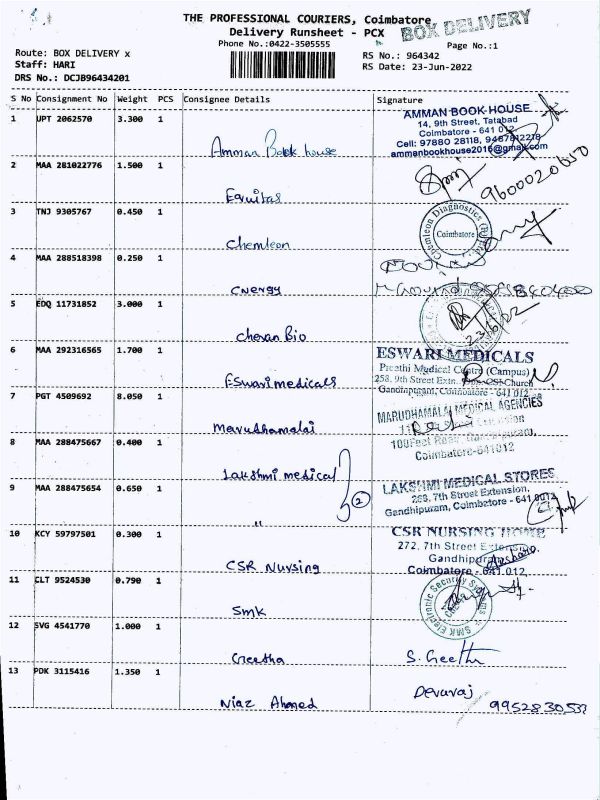 THE PROFESSIONAL COURIERS, Coimbatore
Delivery Runsheet - PCX
BOX DELIVERY
Phone No.:0422-3505555
Page No.:1
Route: BOX DELIVERY x
Staff: HARI
DRS No.: DCJB96434201
RS No.: 964342
RS Date: 23-Jun-2022
S No Consignment No Weight PCS Consignee Details Signature
1 UPT 2062570 3.300 1
Amman Book house
AMMAN BOOK HOUSE
14, 9th Street, Tatabad
Coimbatore - 641 012
Cell: 97880 28118, 9487812218
ammanbookhouse2016@gmail.com
2 MAA 281022776 1.500 1
Equitas
9600020650
3 TNJ 9305767 0.450 1
Chemleon
Chemleon Diagnostics
Coimbatore
4 MAA 288518398 0.250 1
CNergy
5 EDQ 11731852 3.000 1
Cheran Bio
23/6/22
6 MAA 292316565 1.700 1
Eswari medicals
ESWARI MEDICALS
Preethi Medical Centre (Campus)
258, 9th Street Extn. CSI Church
Gandhipuram, Coimbatore - 641 012
7 PGT 4509692 8.050 1
Marudhamalai
MARUDHAMALAI MEDICAL AGENCIES
Extension
100Feet Road, Gandhipuram,
Coimbatore-641012
8 MAA 288475667 0.400 1
Lakshmi medical
9 MAA 288475654 0.650 1
"
2
LAKSHMI MEDICAL STORES
269, 7th Street Extension,
Gandhipuram, Coimbatore - 641 0012
10 KCY 59797501 0.300 1
CSR Nursing
CSR NURSING HOME
272, 7th Street Extension
Gandhipuram
Coimbatore - 641 012
11 CLT 9524530 0.790 1
Smk
SMK Electronic Security Systems
12 SVG 4541770 1.000 1
Geetha
S. Geetha
13 PDK 3115416 1.350 1
Niaz Ahmed
Devaraj
9952830533